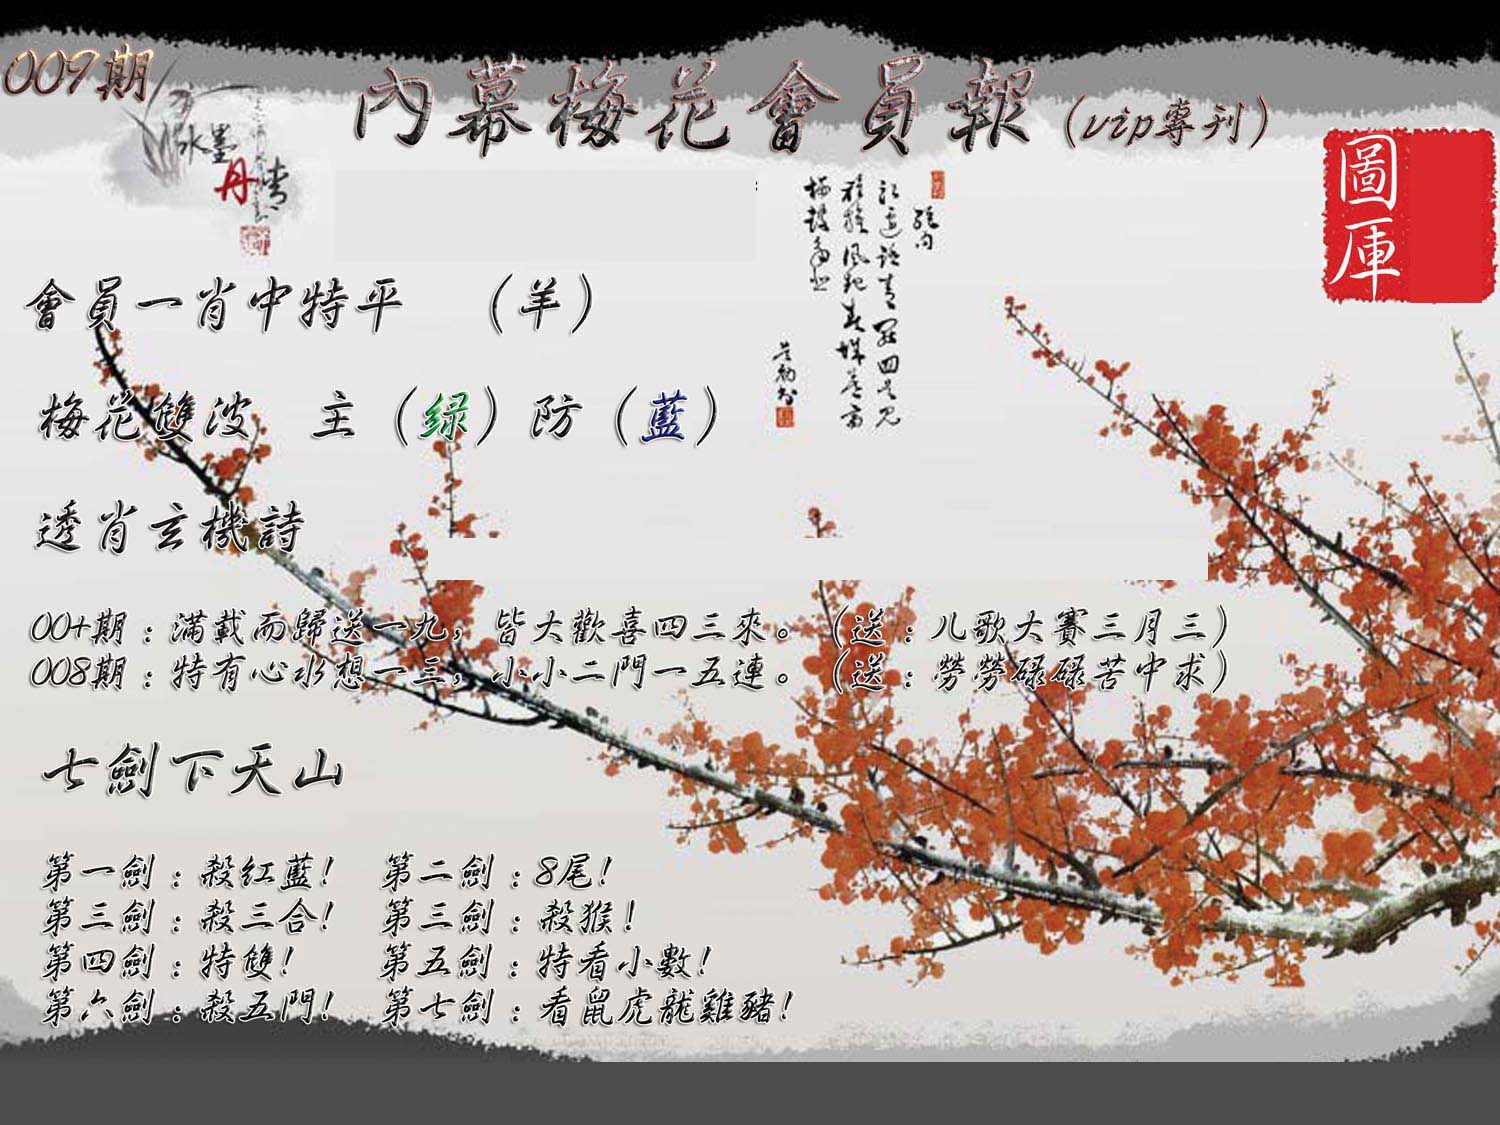 009期
內幕梅花會員報(vip專刊)
水墨
丹青
圖庫
會員一肖中特平 （羊）
梅花雙波 主（绿）防（藍）
透肖玄機詩
00+期：滿載而歸送一九，皆大歡喜四三來。（送：儿歌大賽三月三）
008期：特有心水想一三，小小二門一五連。（送：勞勞碌碌苦中求）
七劍下天山
第一劍：殺红藍！ 第二劍：8尾！
第三劍：殺三合！ 第三劍：殺猴！
第四劍：特雙！ 第五劍：特看小數！
第六劍：殺五門！ 第七劍：看鼠虎龍雞豬！